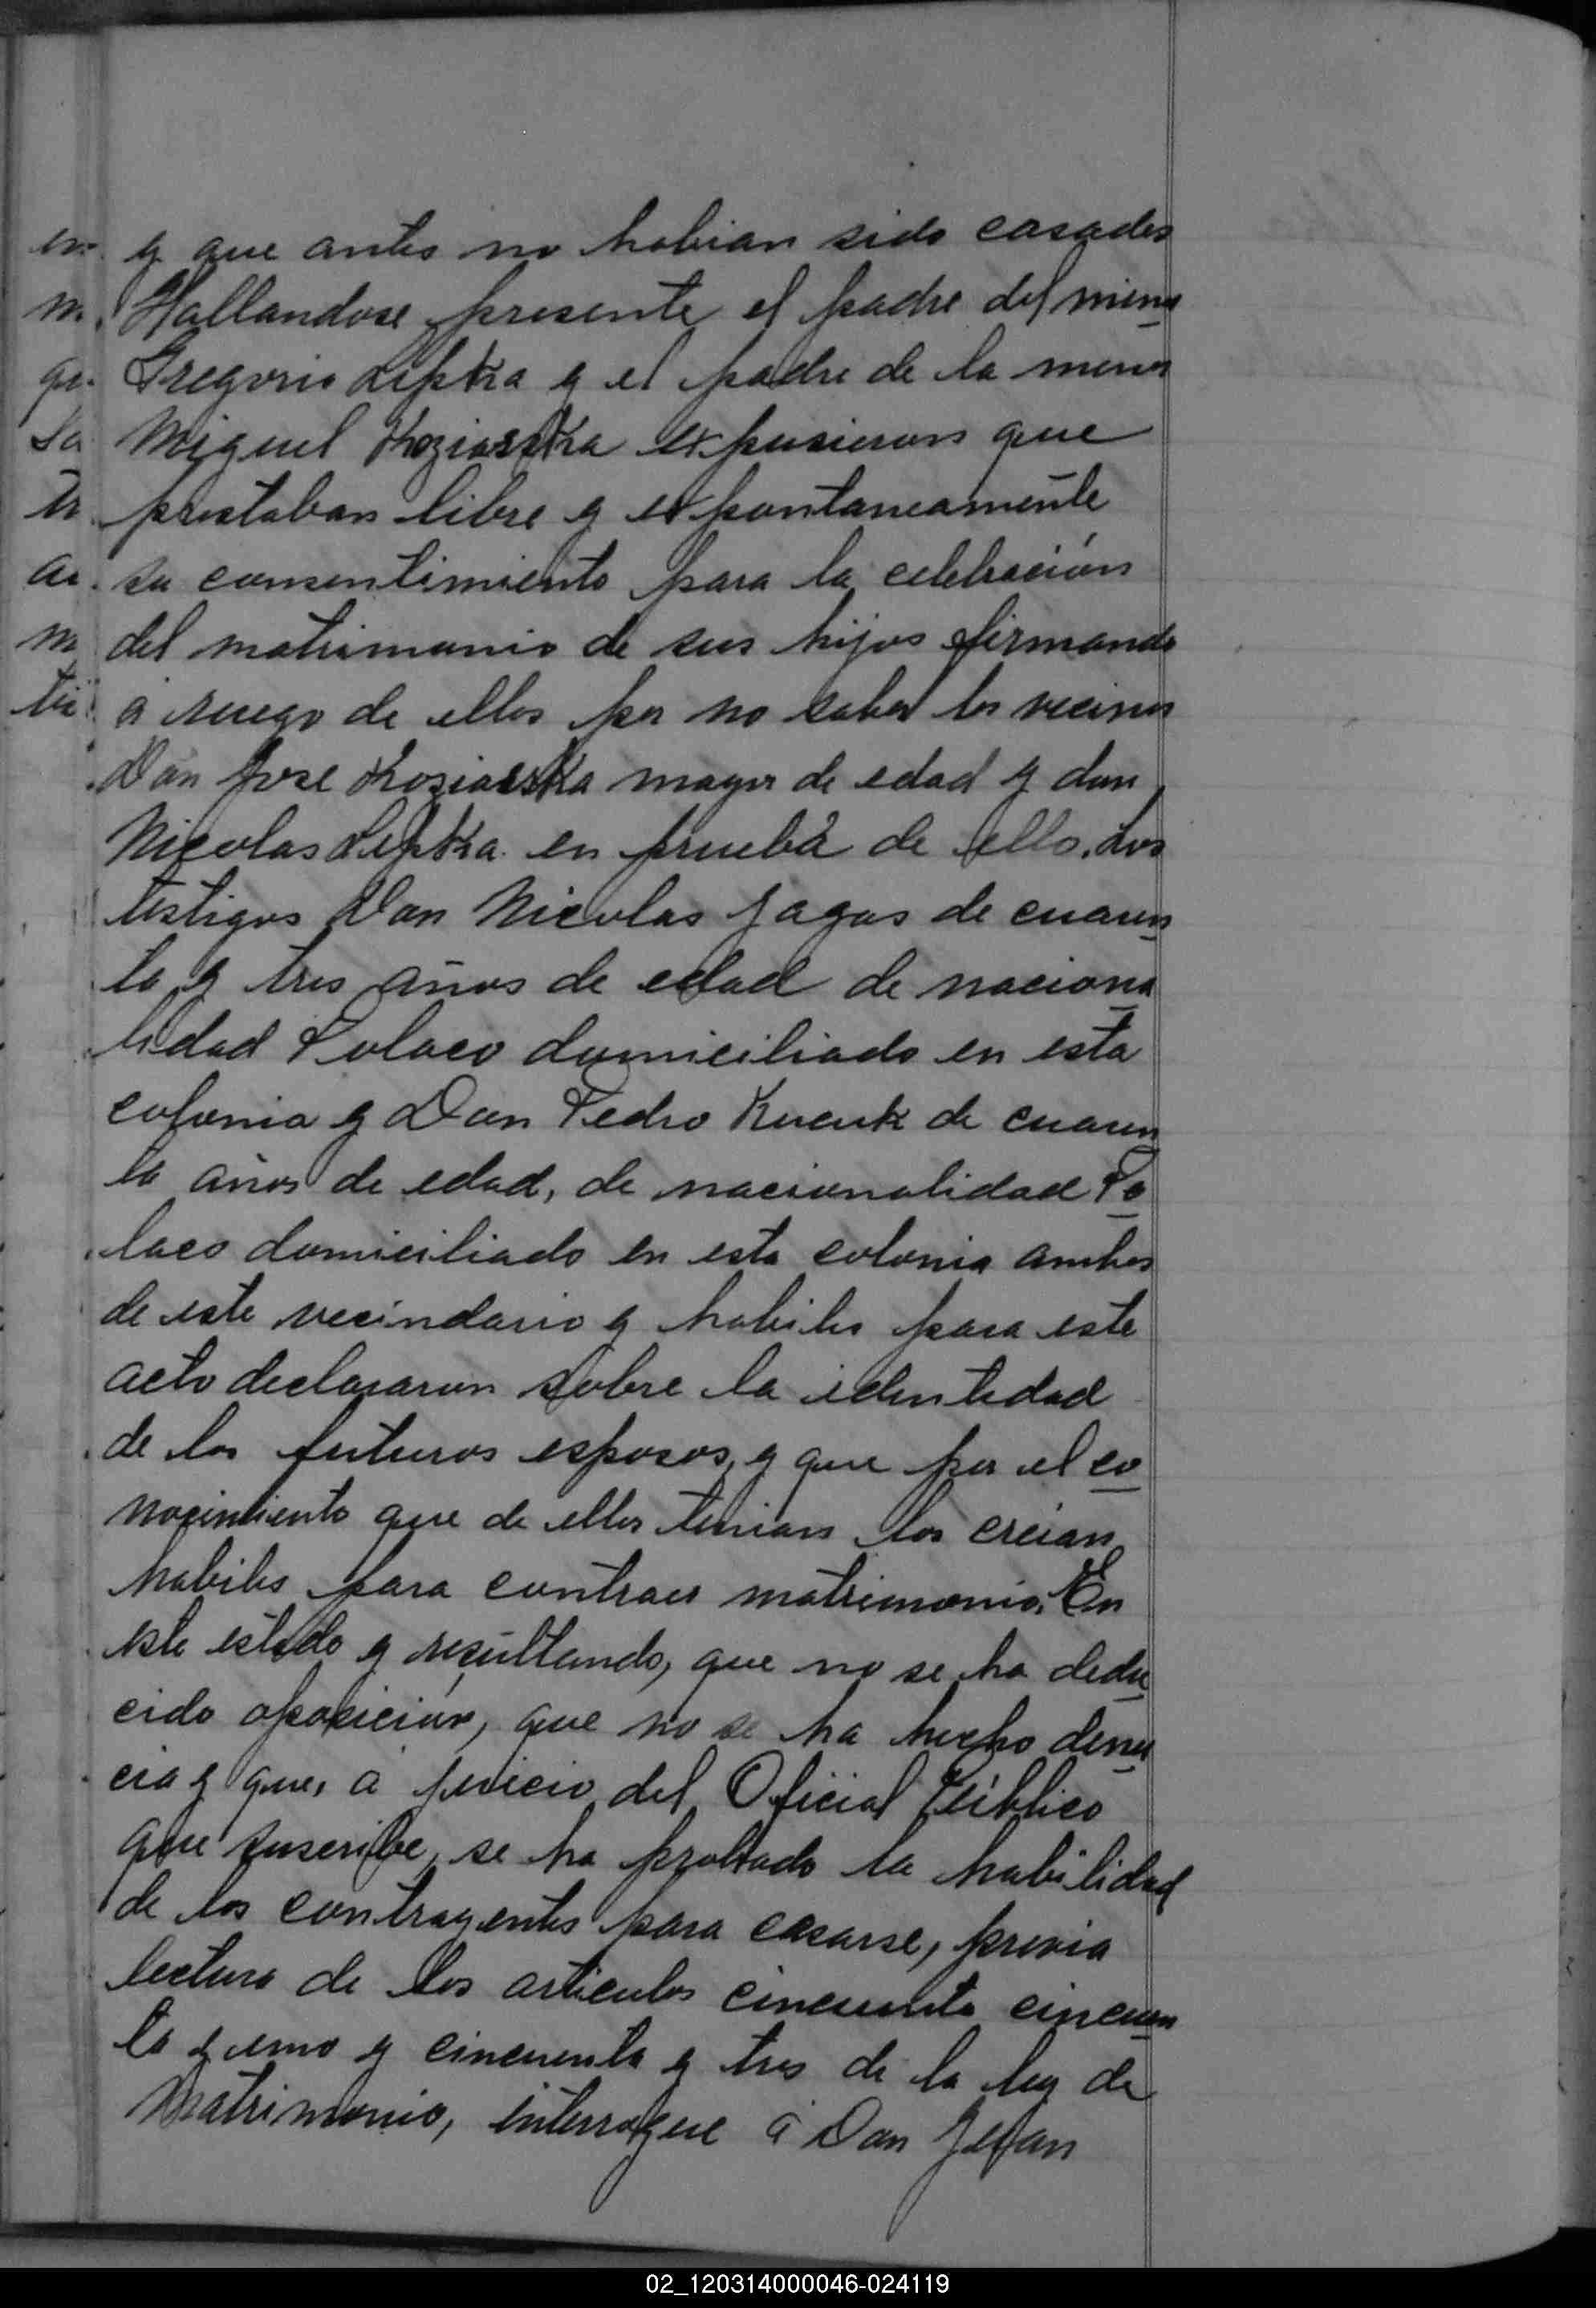 y que antes no habian sido casados
Hallandose presente el padre del meno
Gregorio Lepka y el padre de la menor
Miguel Koziarska expusieron que
prestaban libre y expontaneamente
su consentimiento para la celebración
del matrimonio de sus hijos firmando
á ruego de ellos por no saber los vecinos
Don Jose Koziarska mayor de edad y don
Nicolas Lepka en prueba de ello. Los
testigos Don Nicolas Jagas de cuaren
ta y tres años de edad de naciona
lidad Polaco domiciliado en esta
colonia y Don Pedro de cuaren
ta años de edad, de nacionalidad Po
laco domiciliado en esta colonia ambos
de este vecindario y habiles para este
acto declararon sobre la identidad
de los futuros esposos, y que por el co
nocimiento que de ellos tenian los creian
habiles para contraer matrimonio. En
este estado y resultando, que no se ha dedu
cido oposición, que no se ha hecho denun
cia y que, á juicio del Oficial Público
que suscribe, se ha probado la habilidad
de los contrayentes para casarse, previa
lectura de los articulos cincuenta cincuen
ta y uno y cincuenta y tres de la ley de
Matrimonio, interrogue á Don Juan
02_120314000046-024119